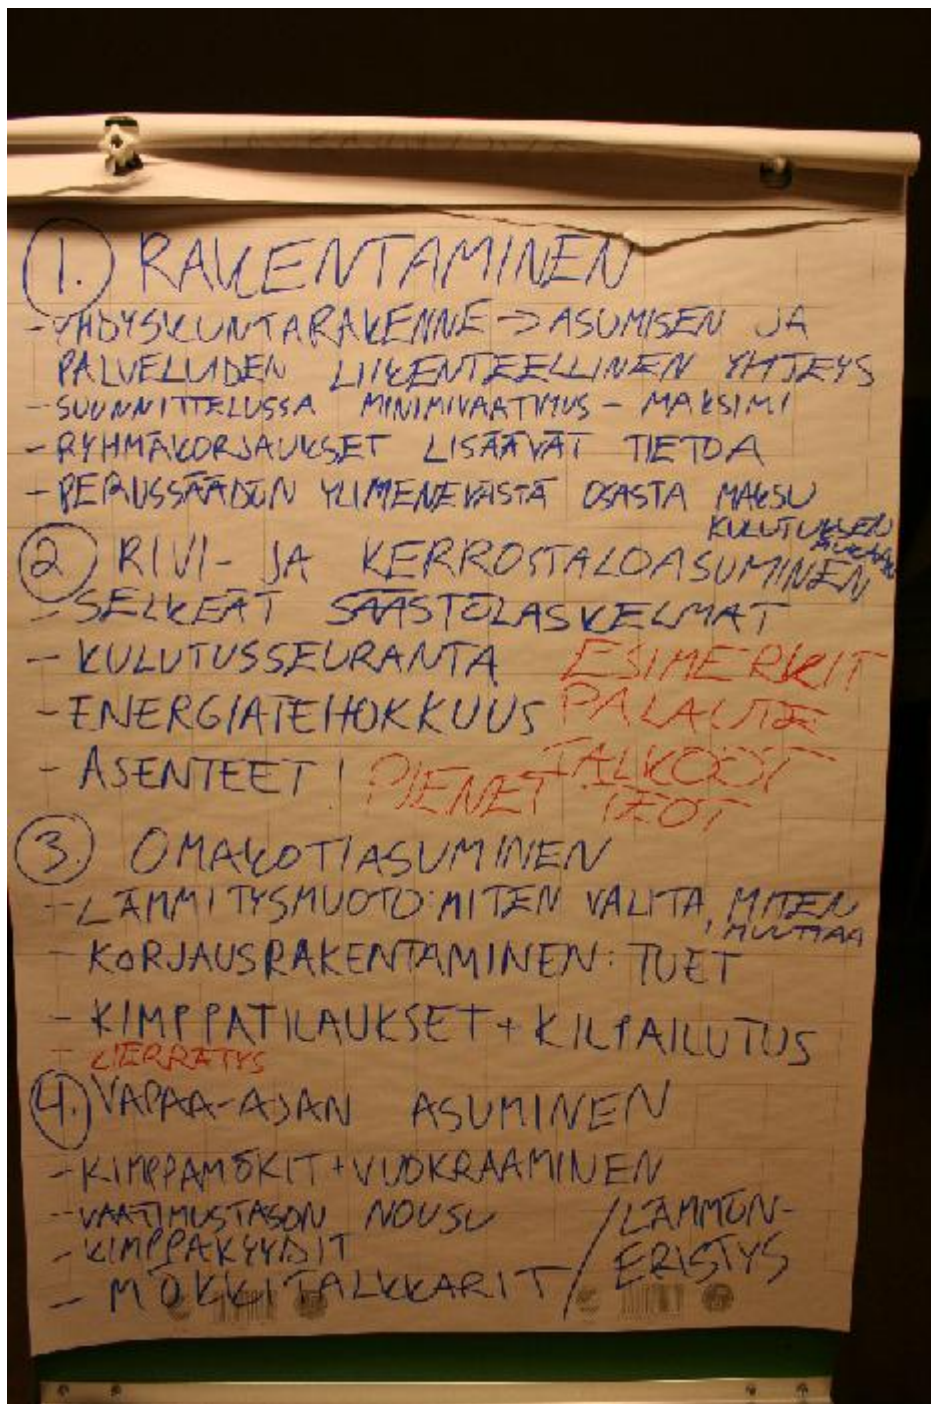 1. RAKENTAMINEN
- YHDYSKUNTARAKENNE -> ASUMISEN JA
PALVELUIDEN LIIKENTEELLINEN YHTEYS
- SUUNNITTELUSSA MINIMIVAATIMUS - MAKSIMI
- RYHMÄKORJAUKSET LISÄÄVÄT TIETOA
- PERUSSÄÄDÖN YLIMENEVÄSTÄ OSASTA MAKSU
KULUTUKSEN
MUKAAN
2 RIVI- JA KERROSTALOASUMINEN
- SELKEÄT SÄÄSTÖLASKELMAT
- KULUTUSSEURANTA ESIMERKIT
- ENERGIATEHOKKUUS PALAUTE
- ASENTEET! TALKOOT
PIENET TEOT
3. OMAKOTIASUMINEN
- LÄMMITYSMUOTO: MITEN VALITA, MITEN
MUUTTAA
- KORJAUSRAKENTAMINEN: TUET
- KIMPPATILAUKSET + KILPAILUTUS
- KIERRÄTYS
4. VAPAA-AJAN ASUMINEN
- KIMPPAMÖKIT + VUOKRAAMINEN
- VAATIMUSTASON NOUSU / LÄMMÖN-
- KIMPPAKYYDIT ERISTYS
- MÖKKITALKKARIT